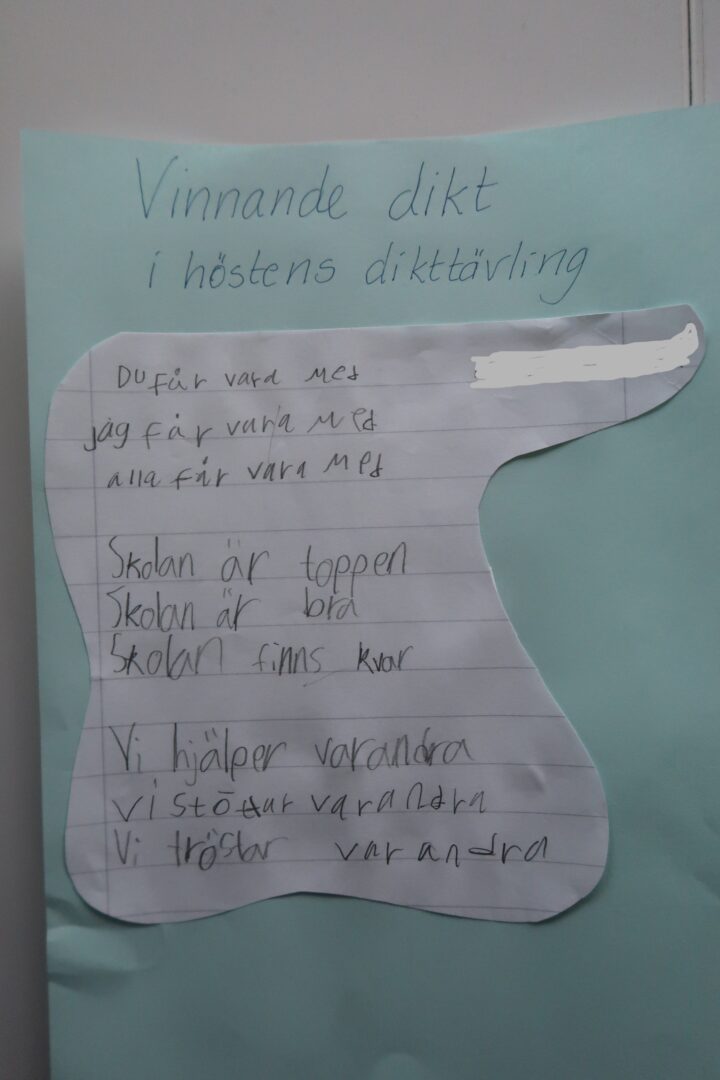 Vinnande dikt
i höstens dikttävling
Du får vara med
jag får vara med
alla får vara med
Skolan är toppen
Skolan är bra
Skolan finns kvar
Vi hjälper varandra
Vi stöttar varandra
Vi tröstar varandra